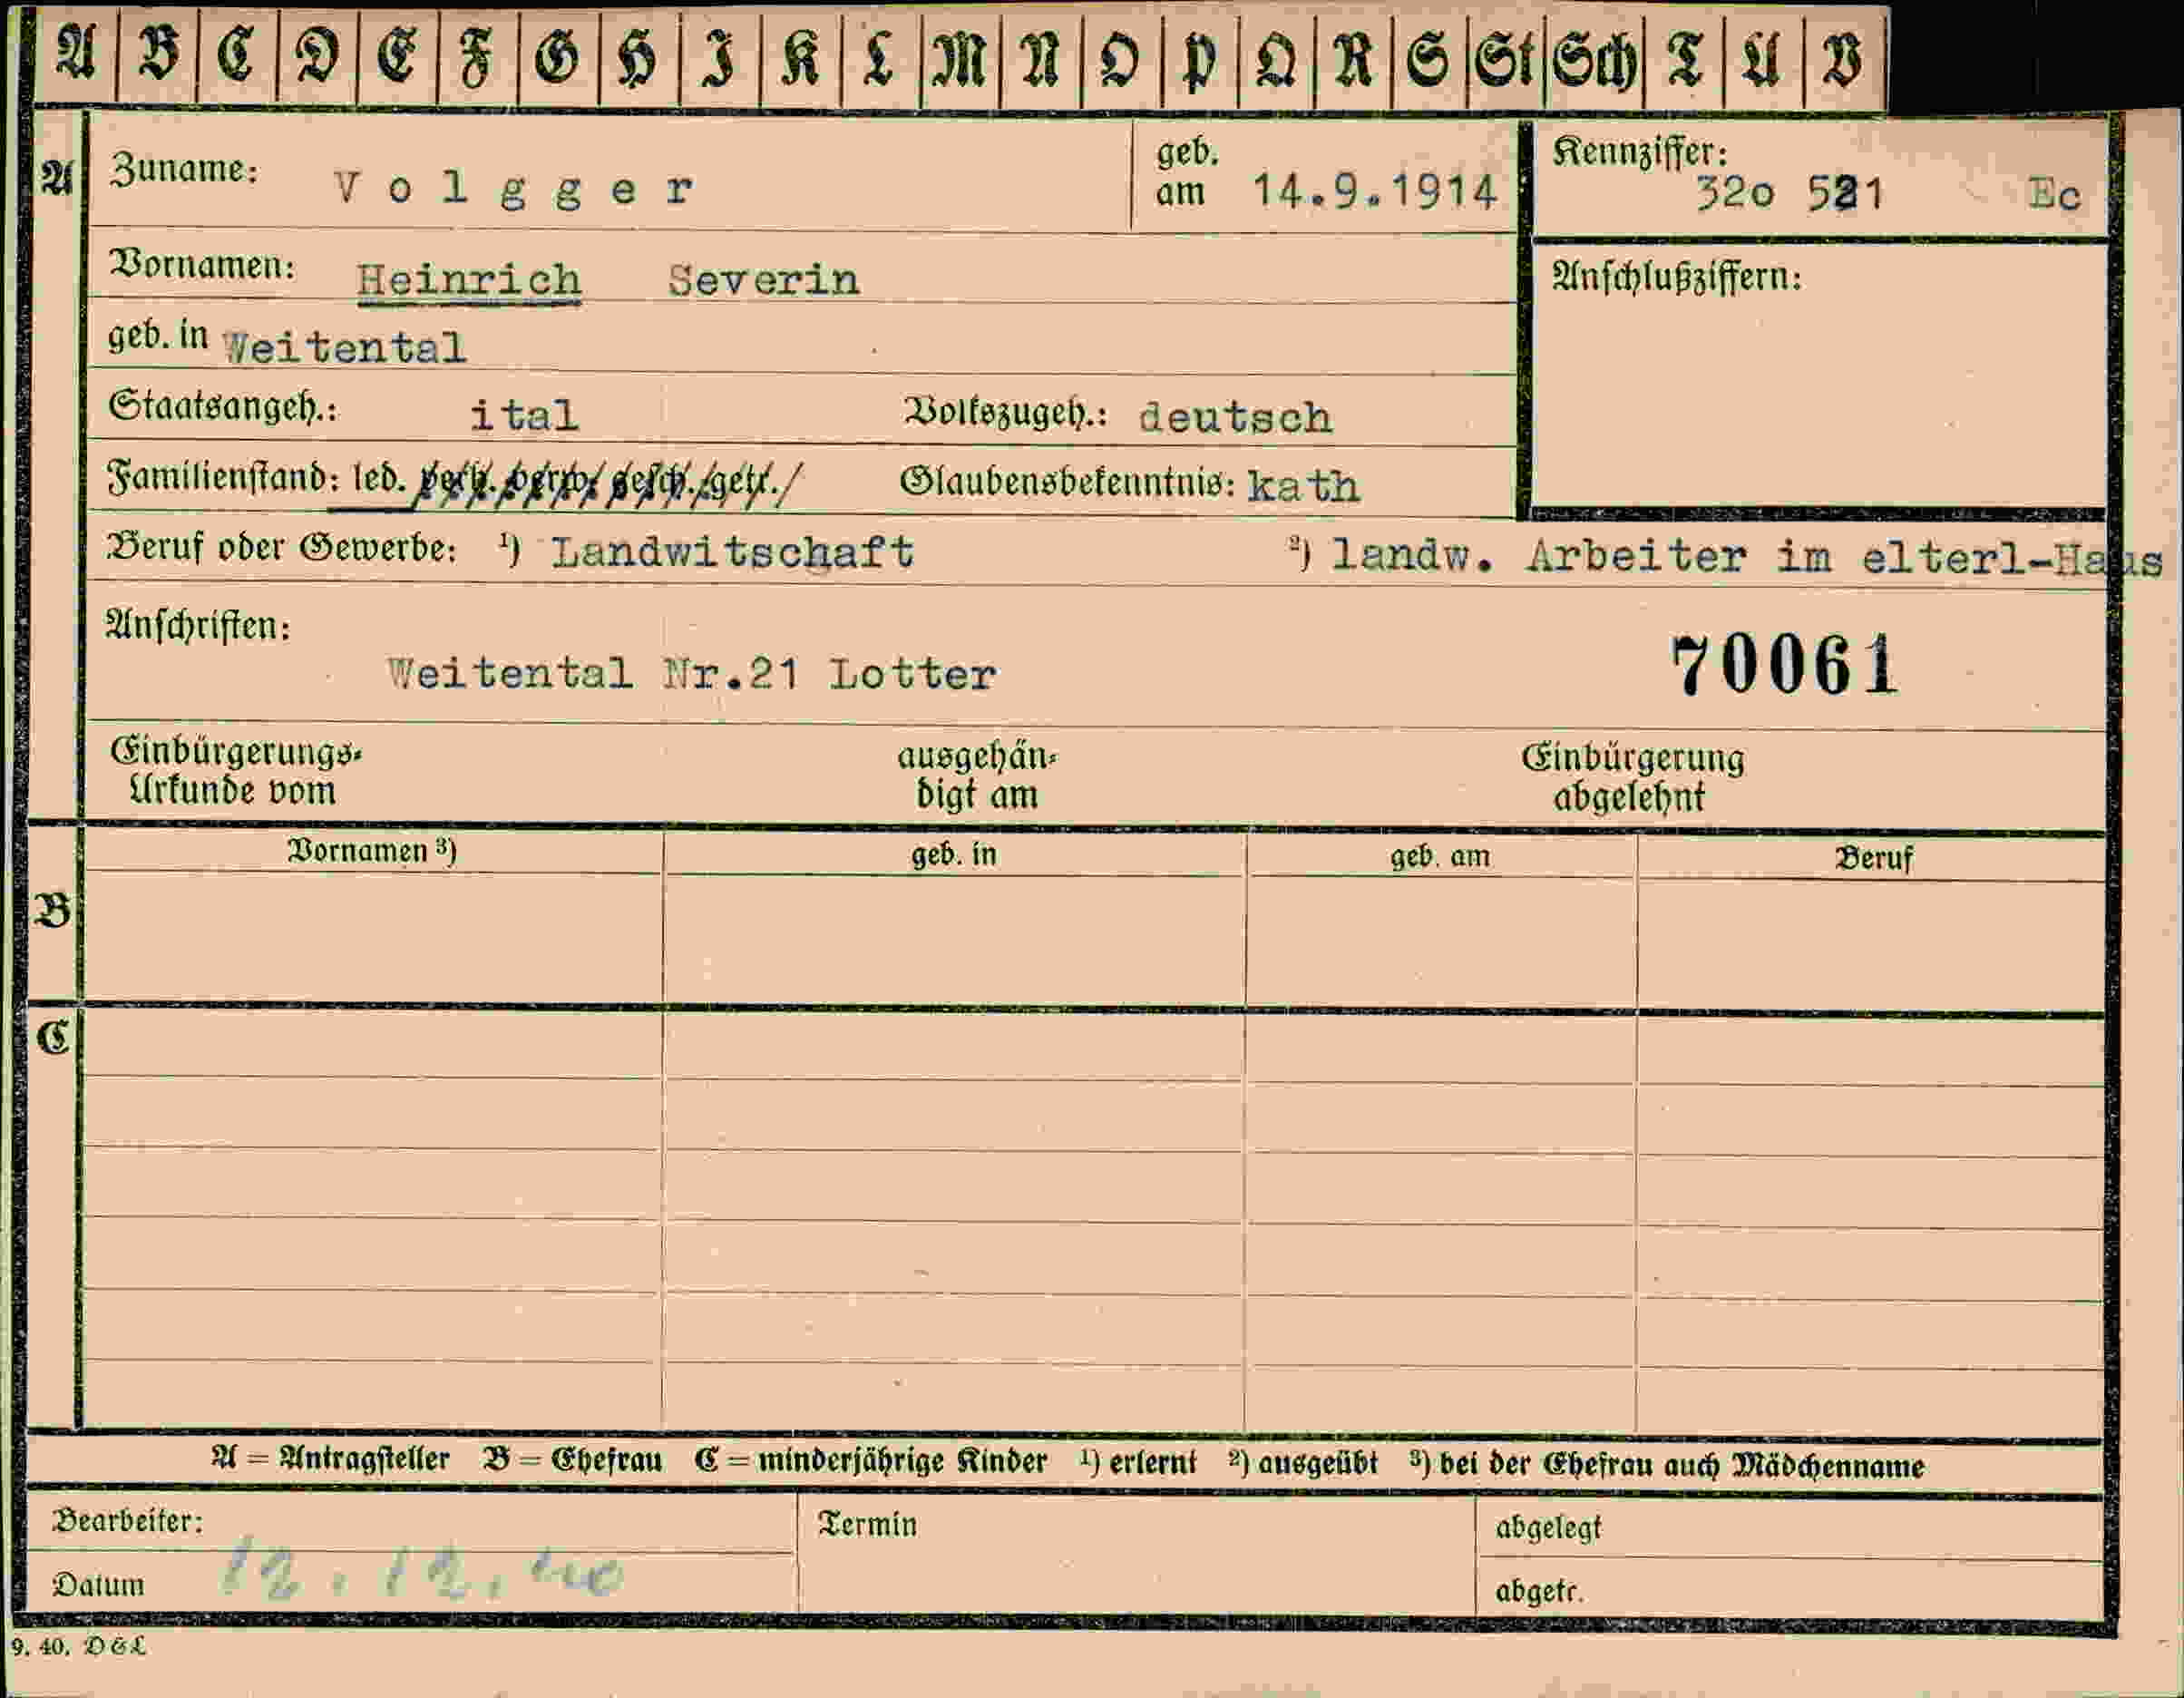 A B C D E F G H I K L M N O P Q R S St Sch T U V
A Zuname: Volgger geb. am 14.9.1914 Kennziffer: 32o 521 Ec
Vornamen: Heinrich Severin Anschlußziffern:
geb. in Weitental
Staatsangeh.: ital Volkszugeh.: deutsch
Familienstand: led. verh. verw. gesch. getr. Glaubensbekenntnis: kath
Beruf oder Gewerbe: ¹) Landwitschaft ²) landw. Arbeiter im elterl-Haus
Anschriften:
Weitental Nr.21 Lotter 70061
Einbürgerungs- ausgehän- Einbürgerung
Urkunde vom digt am abgelehnt
Vornamen ³) geb. in geb. am Beruf
B
C
A = Antragsteller B = Ehefrau C = minderjährige Kinder ¹) erlernt ²) ausgeübt ³) bei der Ehefrau auch Mädchenname
Bearbeiter: Termin abgelegt
Datum 12.12.40 abgetr.
9. 40. D&L